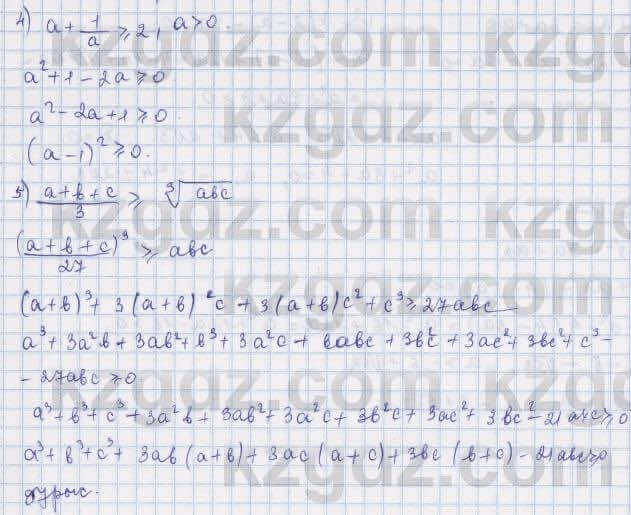 4) a + 1/a ⩾ 2, a > 0.
a² + 1 - 2a ⩾ 0
a² - 2a + 1 ⩾ 0.
(a - 1)² ⩾ 0.
5) (a + b + c)/3 ⩾ ∛abc
(a + b + c)³/27 ⩾ abc
(a+b)³ + 3(a+b)²c + 3(a+b)c² + c³ ⩾ 27abc
a³ + 3a²b + 3ab² + b³ + 3a²c + 6abc + 3b²c + 3ac² + 3bc² + c³ -
- 27abc ⩾ 0
a³ + b³ + c³ + 3a²b + 3ab² + 3a²c + 3b²c + 3ac² + 3bc² - 21abc ⩾ 0
a³ + b³ + c³ + 3ab(a+b) + 3ac(a+c) + 3bc(b+c) - 21abc ⩾ 0
дұрыс.
kzgdz.com